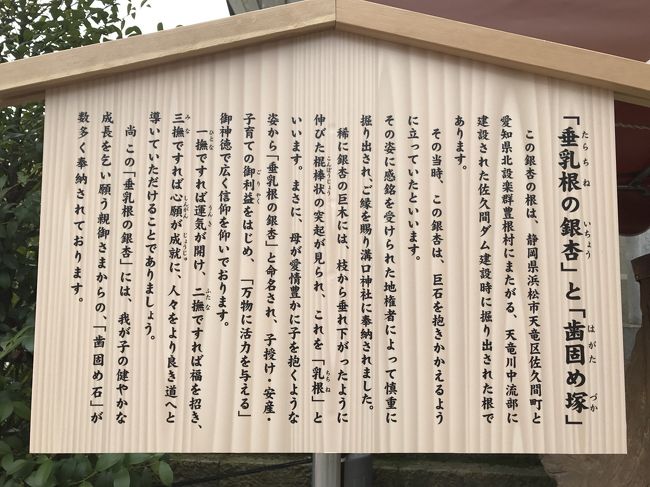 「垂乳根の銀杏」と「歯固め塚」
たらちね いちょう はがた づか
この銀杏の根は、静岡県浜松市天竜区佐久間町と
愛知県北設楽群豊根村にまたがる、天竜川中流部に
建設された佐久間ダム建設時に掘り出された根で
あります。
その当時、この銀杏は、巨石を抱きかかえるよう
に立っていたといいます。
その姿に感銘を受けられた地権者によって慎重に
掘り出され、ご縁を賜り溝口神社に奉納されました。
稀に銀杏の巨木には、枝から垂れ下がったように
伸びた棍棒状の突起が見られ、これを「乳根」と
こんぼうじょう ちちね
いいます。まさに、母が愛情豊かに子を抱くような
姿から「垂乳根の銀杏」と命名され、子授け・安産・
子育ての御利益をはじめ、「万物に活力を与える」
ごりやく
御神徳で広く信仰を仰いでおります。
一撫ですれば運気が開け、二撫ですれば福を招き、
ひとな うんき ふたな
三撫ですれば心願が成就に、人々をより良き道へと
みな しんがん じょうじゅ
導いていただけることでありましょう。
尚 この「垂乳根の銀杏」には、我が子の健やかな
成長を乞い願う親御さまからの、「歯固め石」が
数多く奉納されております。